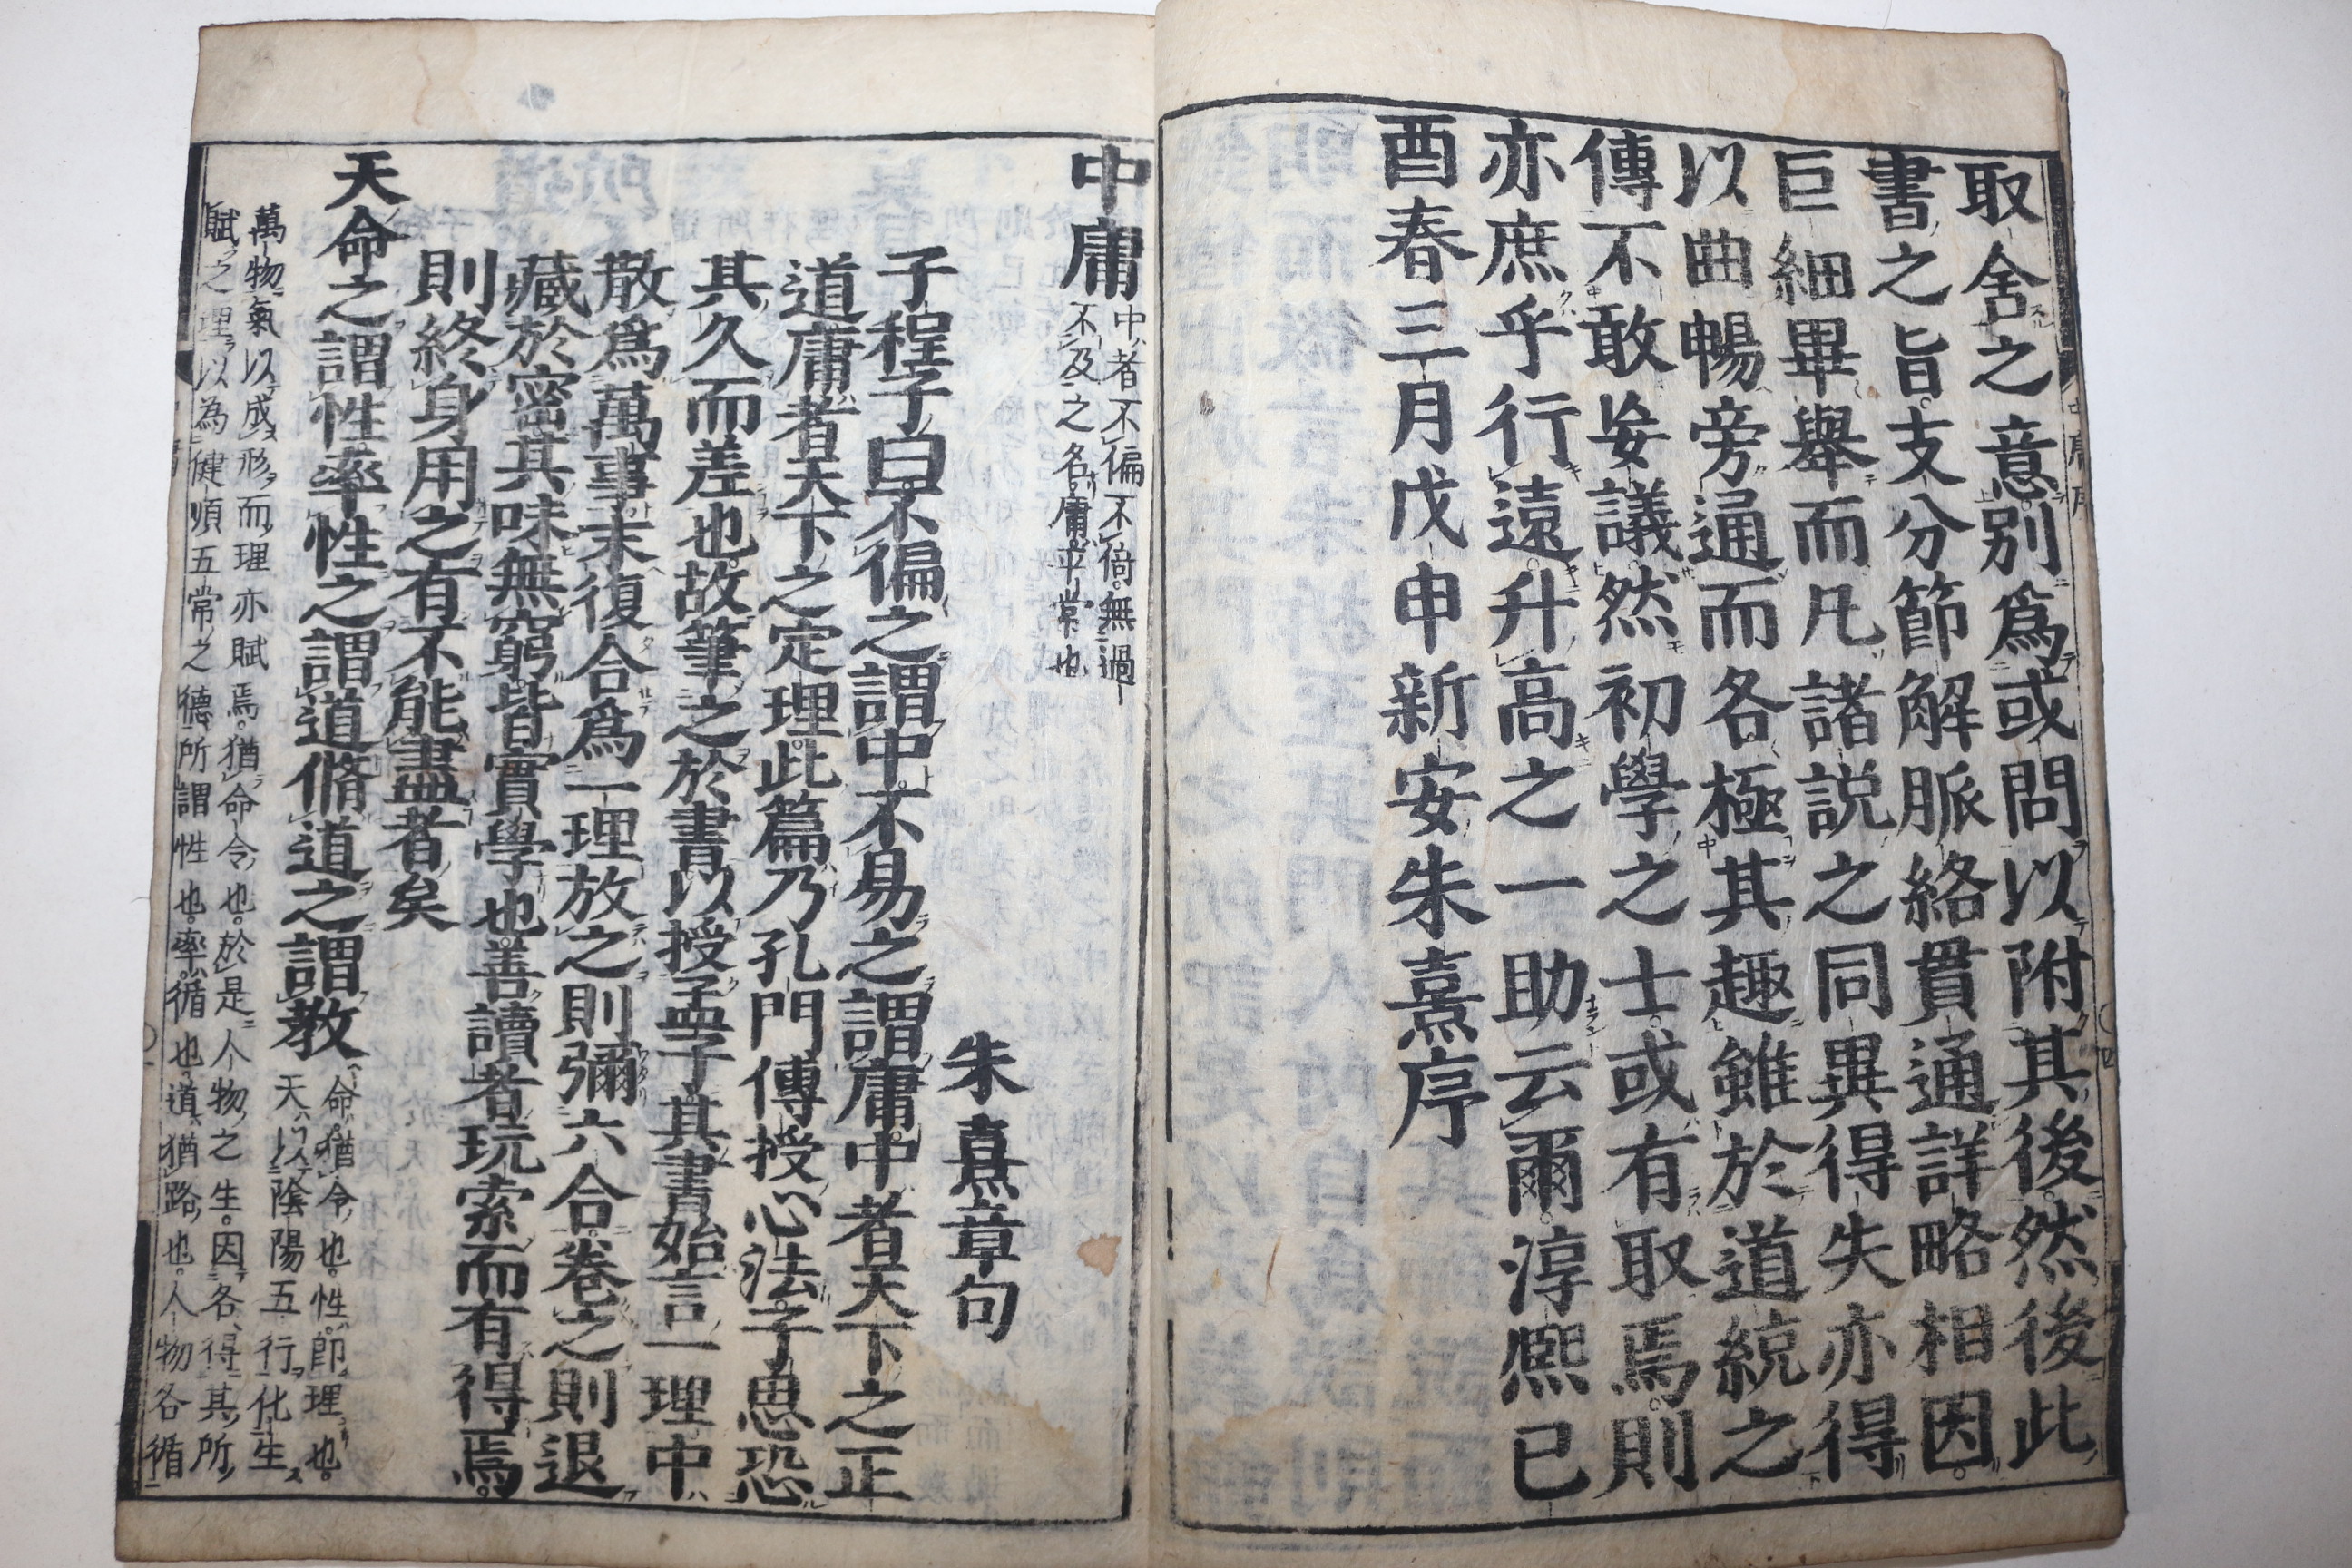 取舍之意別爲或問以附其後然後此
書之旨支分節解脈絡貫通詳略相因
巨細畢舉而凡諸説之同異得失亦得
以曲暢旁通而各極其趣雖於道統之
傳不敢妄議然初學之士或有取焉則
亦庶乎行遠升高之一助云爾淳熈已
酉春三月戊申新安朱熹序
中庸
中者不偏不倚無過
不及之名庸平常也
朱熹章句
子程子曰不偏之謂中不易之謂庸中者天下之正
道庸者天下之定理此篇乃孔門傳授心法子思恐
其久而差也故筆之於書以授孟子其書始言一理中
散爲萬事末復合爲一理放之則彌六合卷之則退
藏於密其味無窮皆實學也善讀者玩索而有得焉
則終身用之有不能盡者矣
天命之謂性率性之謂道脩道之謂教
命猶令也性即理也
天以陰陽五行化生
萬物氣以成形而理亦賦焉猶命令也於是人物之生因各得其所
賦之理以為健順五常之德所謂性也率循也道猶路也人物各循